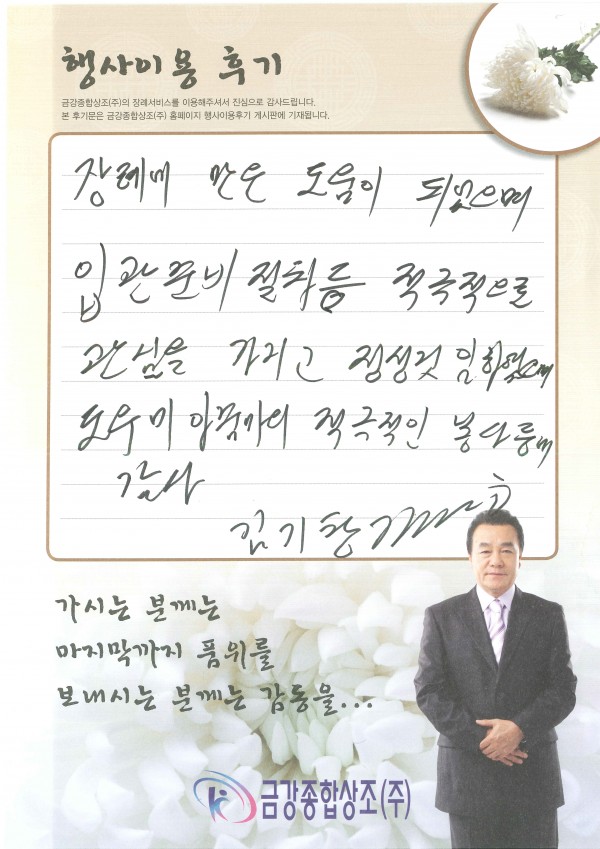 행사이용 후기
금강종합상조(주)의 장례서비스를 이용해주셔서 진심으로 감사드립니다.
본 후기문은 금강종합상조(주) 홈페이지 행사이용후기 게시판에 기재됩니다.
장례에 만은 도움이 되었으며
입관준비 절차등 적극적으로
관심을 가지고 정성것 임하였으며
도우미 아줌마의 적극적인 봉사
감사
김기창
가시는 분께는
마지막까지 품위를
보내시는 분께는 감동을...
금강종합상조(주)